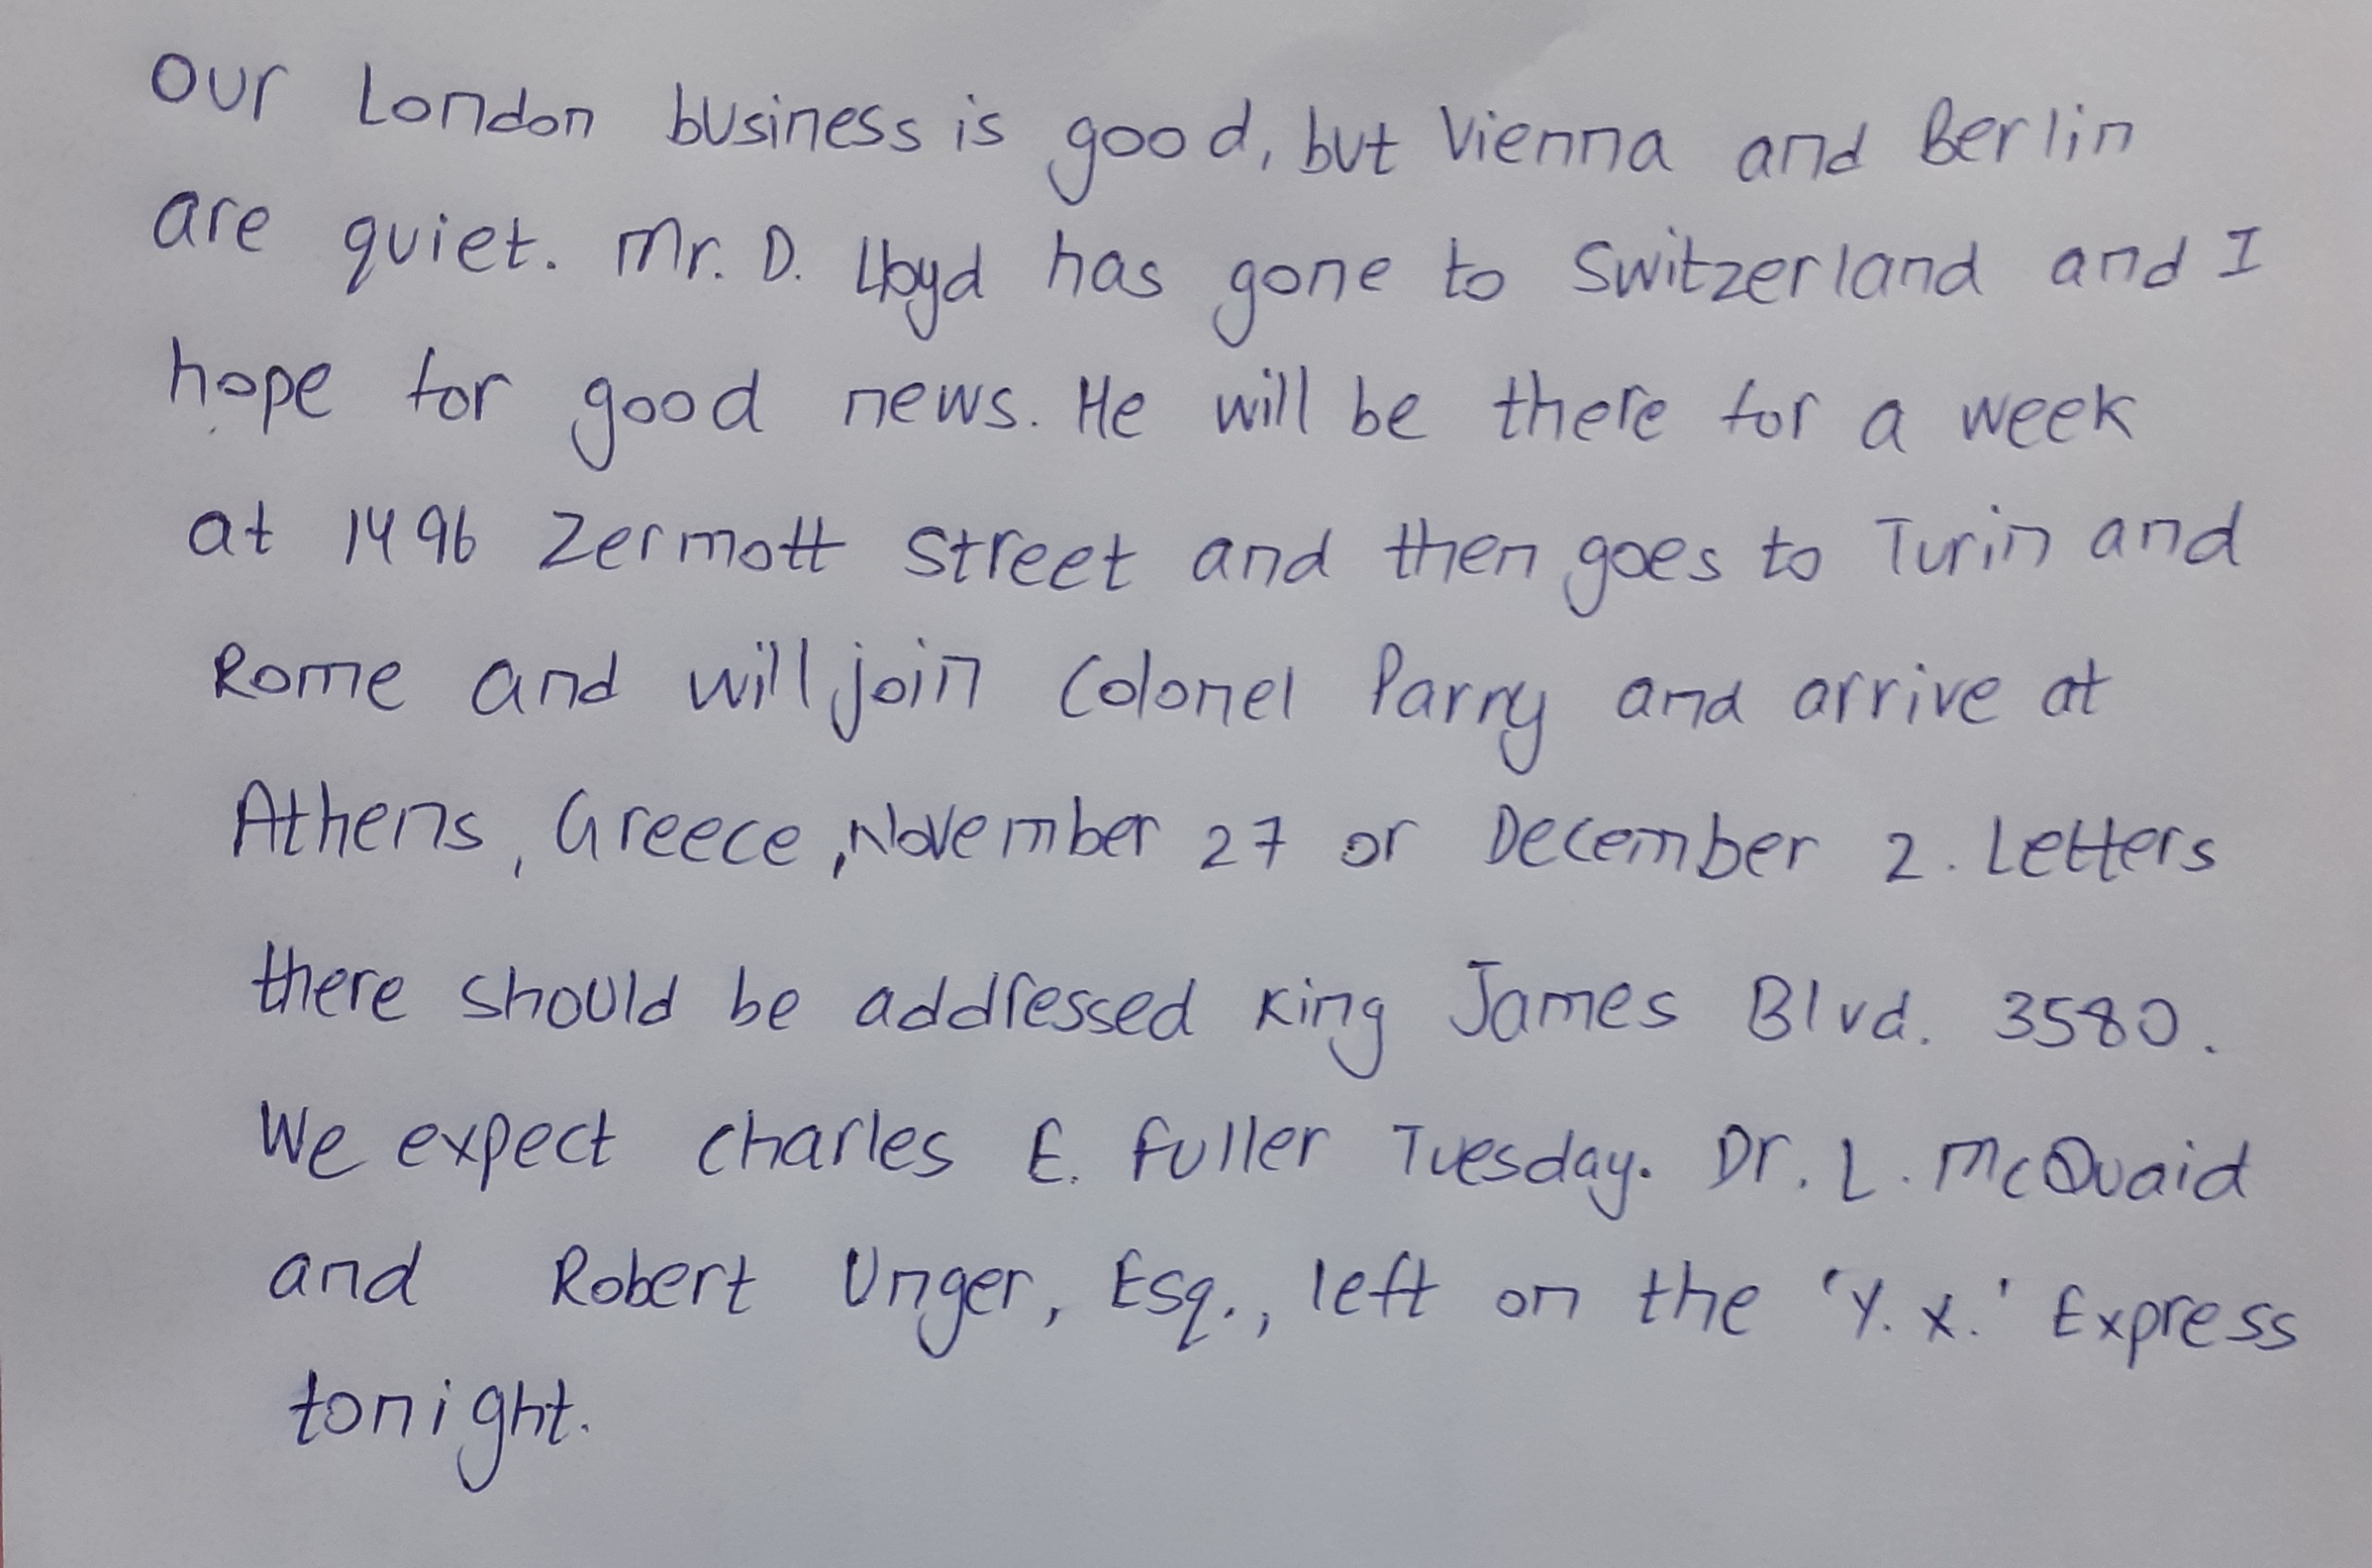 Our London business is good, but Vienna and Berlin
are quiet. Mr. D. Lloyd has gone to Switzerland and I
hope for good news. He will be there for a week
at 1496 Zermott Street and then goes to Turin and
Rome and will join Colonel Parry and arrive at
Athens, Greece, November 27 or December 2. Letters
there should be addressed King James Blvd. 3580.
We expect Charles E. Fuller Tuesday. Dr. L. McQuaid
and Robert Unger, Esq., left on the 'Y.X.' Express
tonight.